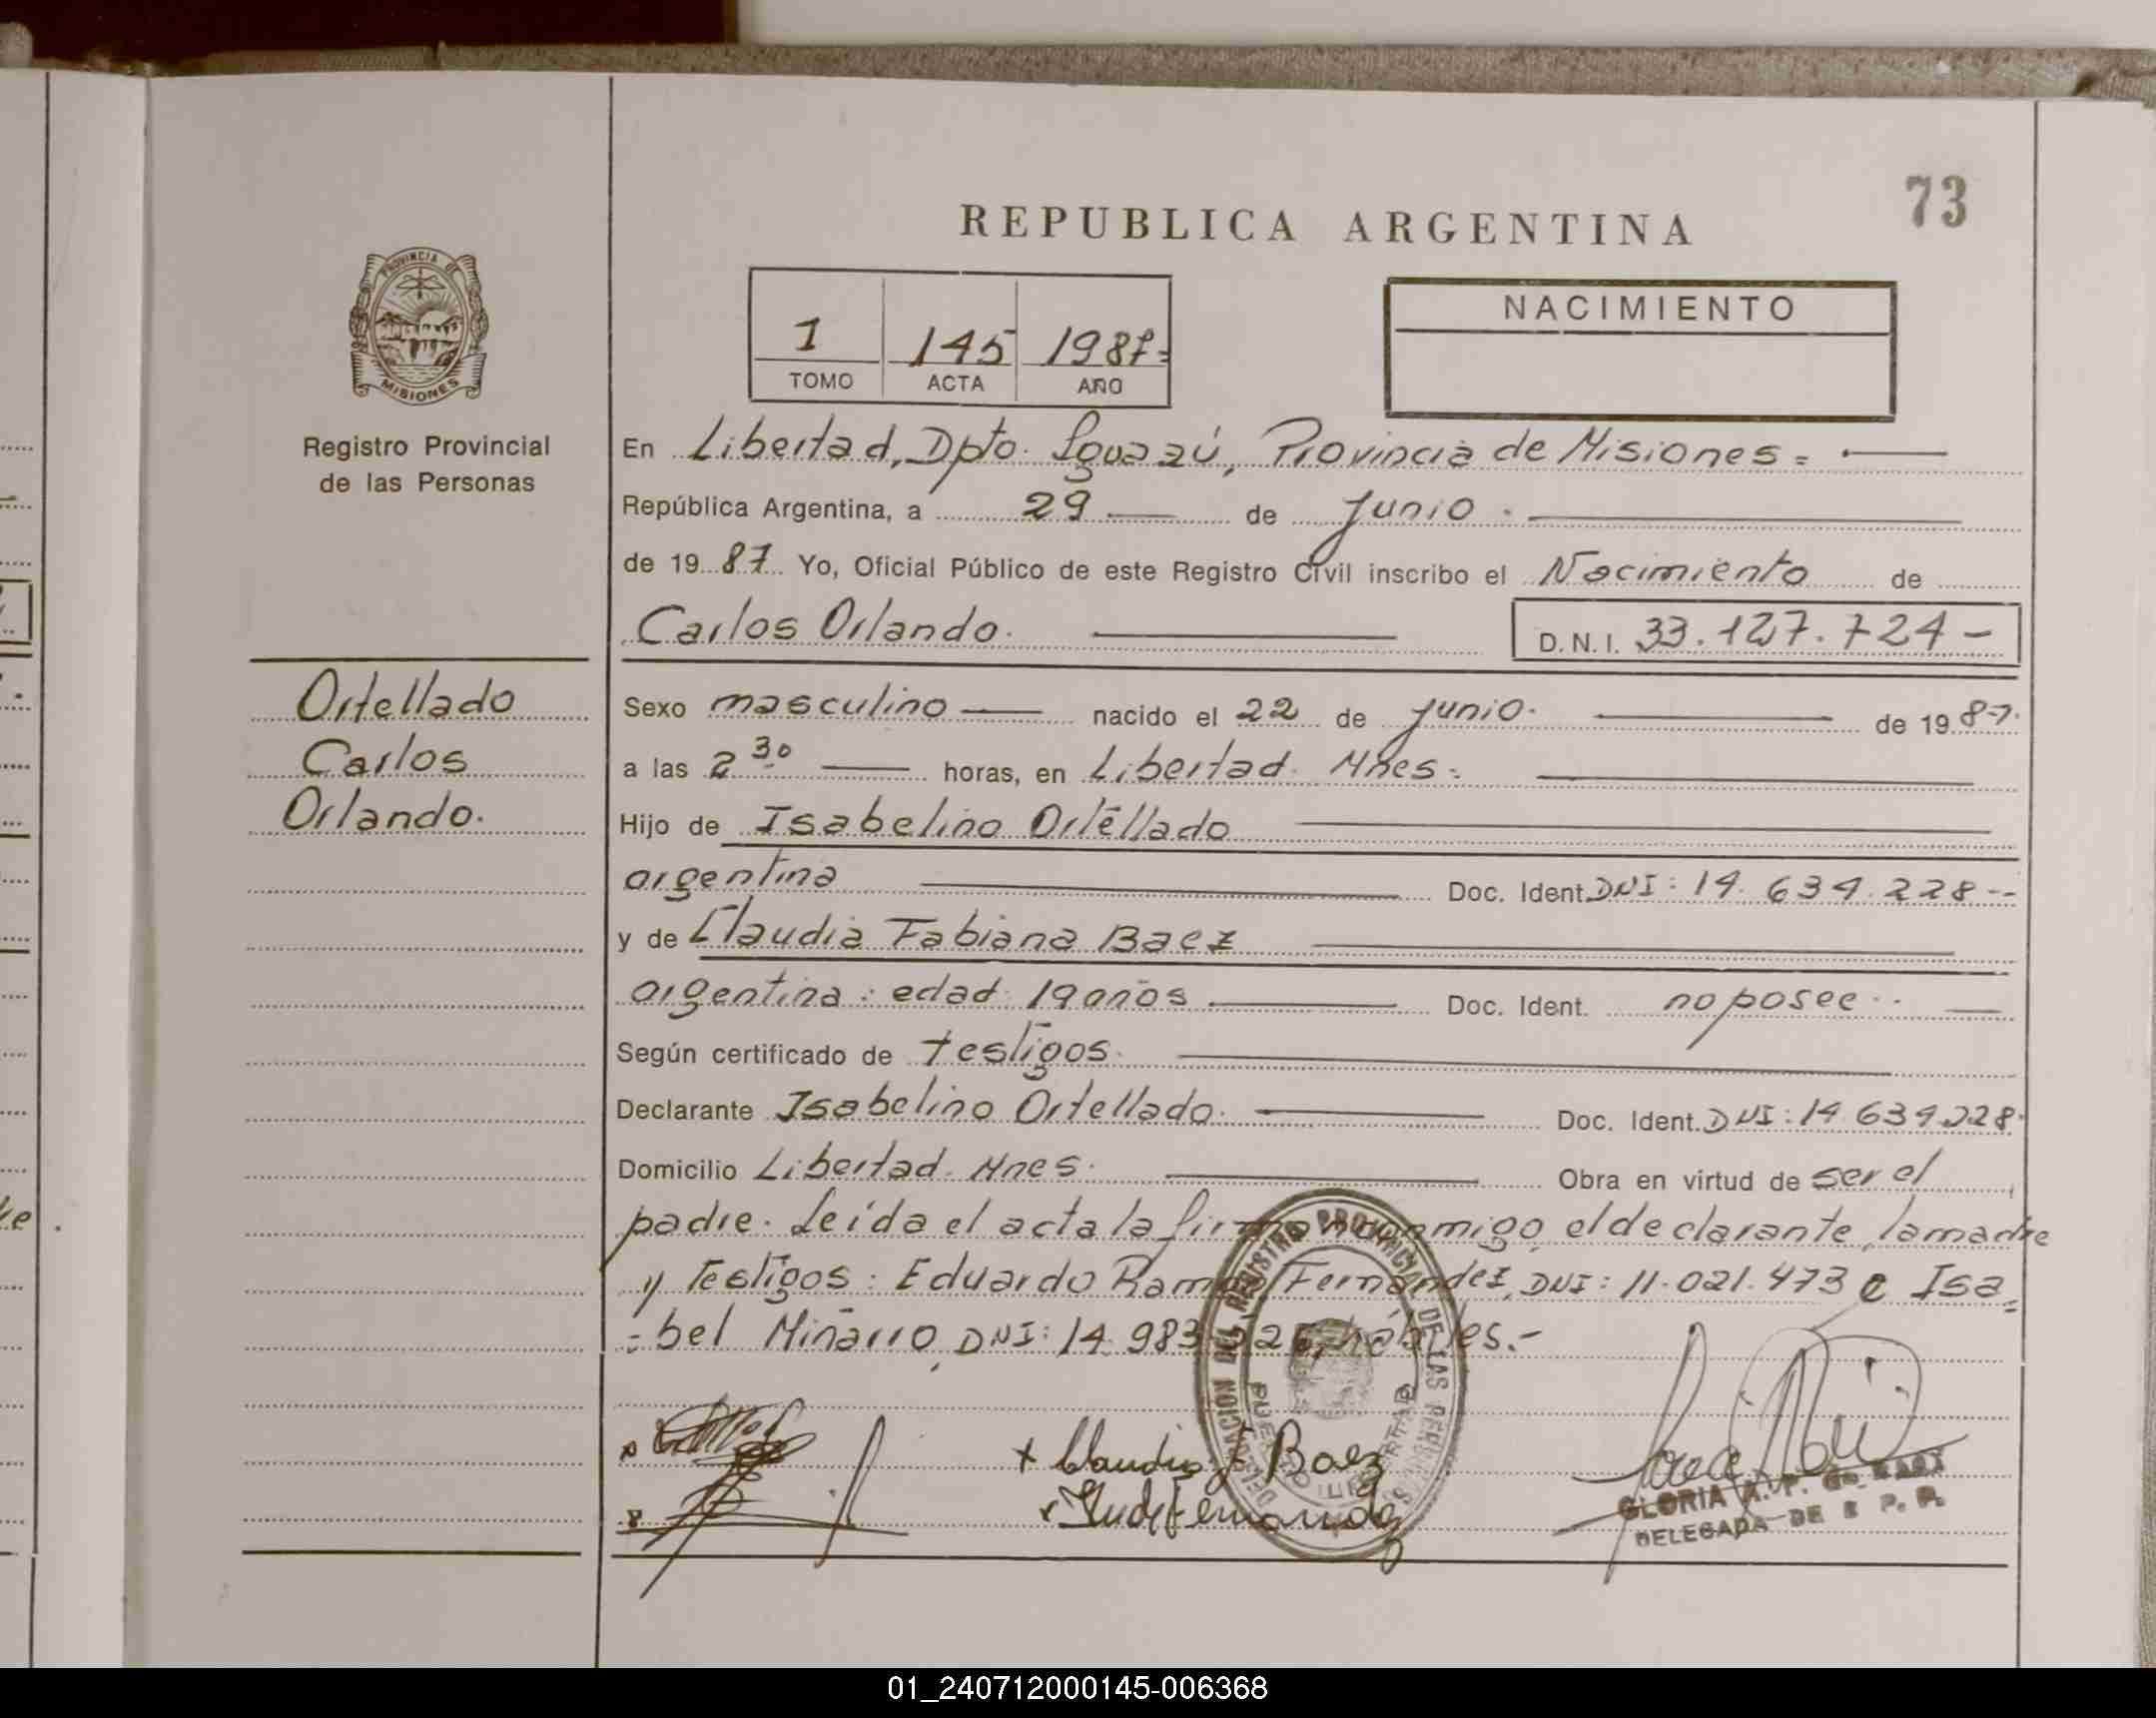 73
REPUBLICA ARGENTINA
PROVINCIA DE
MISIONES
Registro Provincial
de las Personas
1 145 1987=
TOMO ACTA AÑO
NACIMIENTO
En Libertad, Dpto. Iguazú, Provincia de Misiones =
República Argentina, a 29 de Junio.
de 1987 Yo, Oficial Público de este Registro Civil inscribo el Nacimiento de
Carlos Orlando. D.N.I. 33.127.724-
Ortellado
Carlos
Orlando.
Sexo masculino nacido el 22 de junio. de 1987.
a las 2 30 horas, en Libertad. Mnes.
Hijo de Isabelino Ortellado
argentina Doc. Ident. DNI: 14.634.228--
y de Claudia Fabiana Baez
argentina: edad 19 años Doc. Ident. no posee..
Según certificado de testigos.
Declarante Isabelino Ortellado. Doc. Ident. DNI: 14.634.228.
Domicilio Libertad. Mnes. Obra en virtud de ser el
padre. Leída el acta la firman conmigo, el declarante, la madre
y Testigos: Eduardo Ramon Fernandez, DNI: 11.021.473 e Isa=
=bel Miñarro, DNI: 14.983. hábiles.-
x Claudia F Baez
DELEGACION DEL REGISTRO PROVINCIAL DE LAS PERSONAS
PUERTO LIBERTAD
GLORIA
DELEGADA DE
01_240712000145-006368